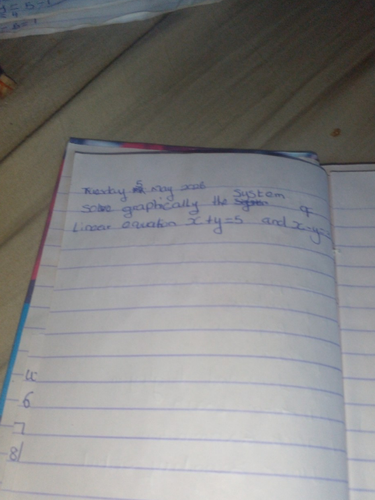 5
Tuesday May
Solve graphically the System of
Linear equation x+y=5 and x-y=
6
7
8